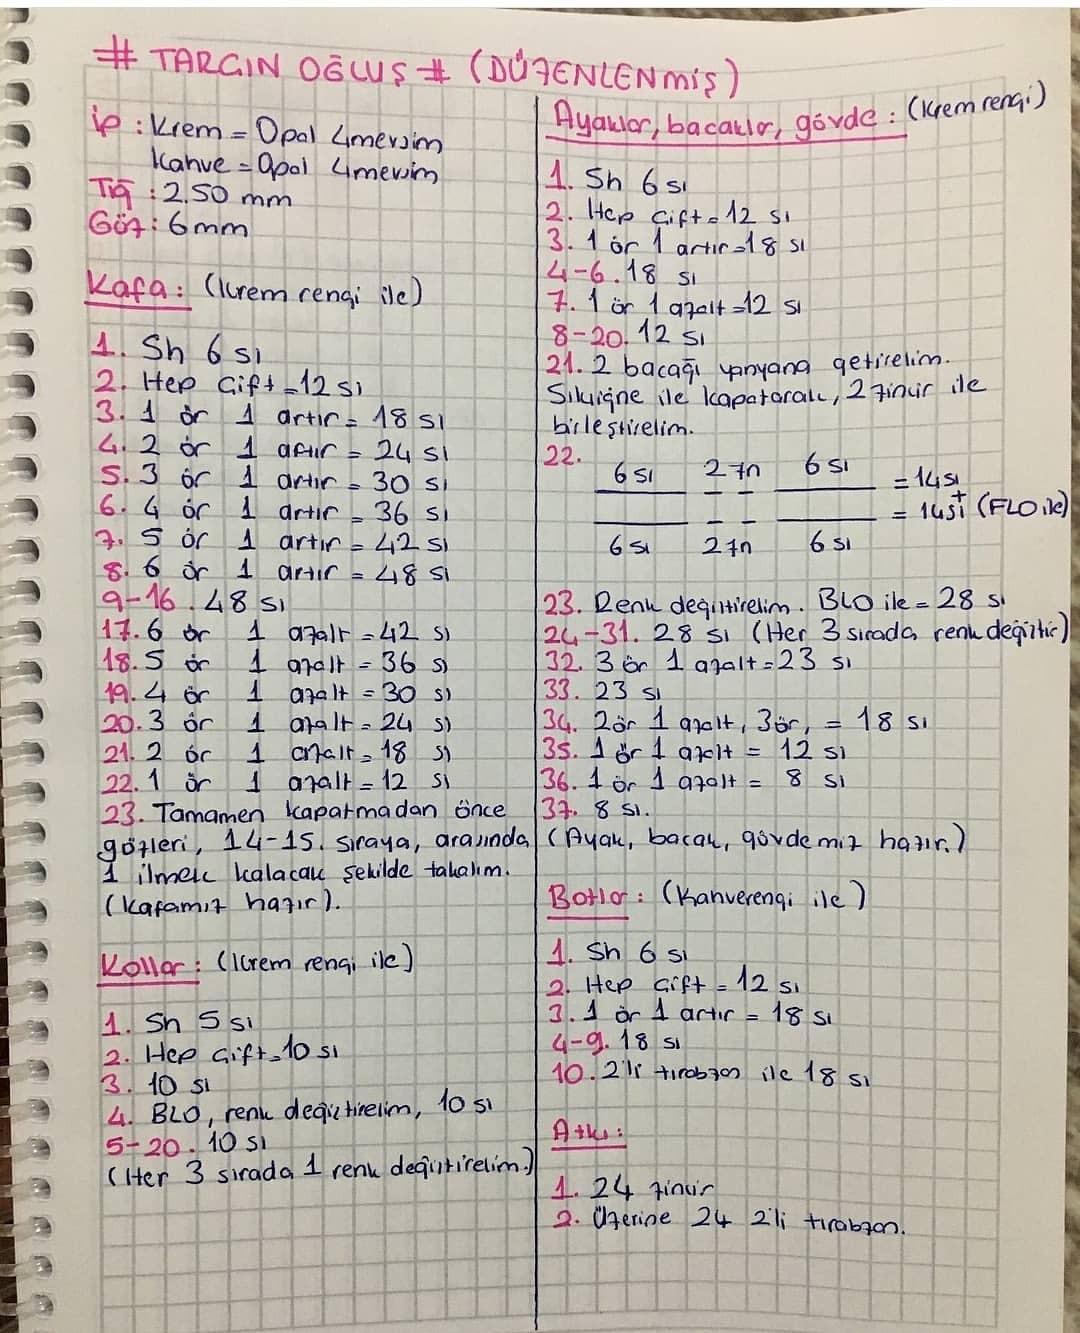 # TARÇIN OĞLUŞ # (DÜZENLENMİŞ)
İp : Krem = Opal 4mevsim
Kahve = Opal 4mevsim
Tığ : 2.50 mm
Göz : 6 mm
Kafa : (Krem rengi ile)
1. Sh 6 sı
2. Hep çift = 12 sı
3. 1 ör 1 artır = 18 sı
4. 2 ör 1 artır = 24 sı
5. 3 ör 1 artır = 30 sı
6. 4 ör 1 artır = 36 sı
7. 5 ör 1 artır = 42 sı
8. 6 ör 1 artır = 48 sı
9-16. 48 sı
17. 6 ör 1 azalt = 42 sı
18. 5 ör 1 azalt = 36 sı
19. 4 ör 1 azalt = 30 sı
20. 3 ör 1 azalt = 24 sı
21. 2 ör 1 azalt = 18 sı
22. 1 ör 1 azalt = 12 sı
23. Tamamen kapatmadan önce
gözleri, 14-15. sıraya, arasında
1 ilmek kalacak şekilde takalım.
(Kafamız hazır).
Kollar : (Krem rengi ile)
1. Sh 5 sı
2. Hep çift = 10 sı
3. 10 sı
4. BLO, renk değiştirelim, 10 sı
5-20. 10 sı
(Her 3 sırada 1 renk değiştirelim.)
Ayaklar, bacaklar, gövde : (Krem rengi)
1. Sh 6 sı
2. Hep çift = 12 sı
3. 1 ör 1 artır = 18 sı
4-6. 18 sı
7. 1 ör 1 azalt = 12 sı
8-20. 12 sı
21. 2 bacağı yanyana getirelim.
Sıkiğne ile kapatarak, 2 zincir ile
birleştirelim.
22. 6 sı 2 zn 6 sı = 14 sı
+
6 sı 2 zn 6 sı = 14 sı (FLO ile)
23. Renk değiştirelim. BLO ile = 28 sı
24-31. 28 sı (Her 3 sırada renk değiştir)
32. 3 ör 1 azalt = 23 sı
33. 23 sı
34. 2 ör 1 azalt, 3 ör, = 18 sı
35. 1 ör 1 azalt = 12 sı
36. 1 ör 1 azalt = 8 sı
37. 8 sı.
(Ayak, bacak, gövdemiz hazır.)
Botlar : (Kahverengi ile)
1. Sh 6 sı
2. Hep çift = 12 sı
3. 1 ör 1 artır = 18 sı
4-9. 18 sı
10. 2'li tırabzan ile 18 sı
Atkı :
1. 24 zincir
2. Üzerine 24 2'li tırabzan.